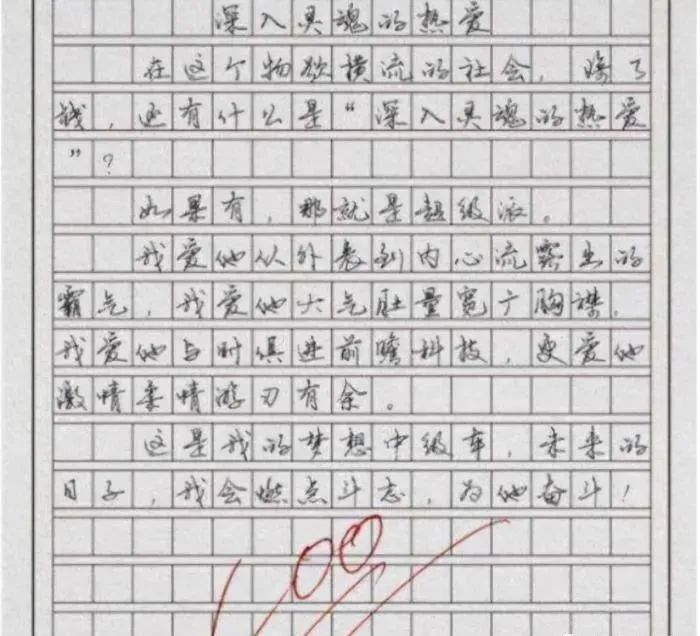 深入灵魂的热爱
在这个物欲横流的社会，除了
钱，还有什么是“深入灵魂的热爱
”？
如果有，那就是超级派。
我爱他从外表到内心流露出的
霸气，我爱他大气肚量宽广胸襟，
我爱他与时俱进前瞻科技，更爱他
激情豪情游刃有余。
这是我的梦想中级车，未来的
日子，我会燃点斗志，为他奋斗！
100